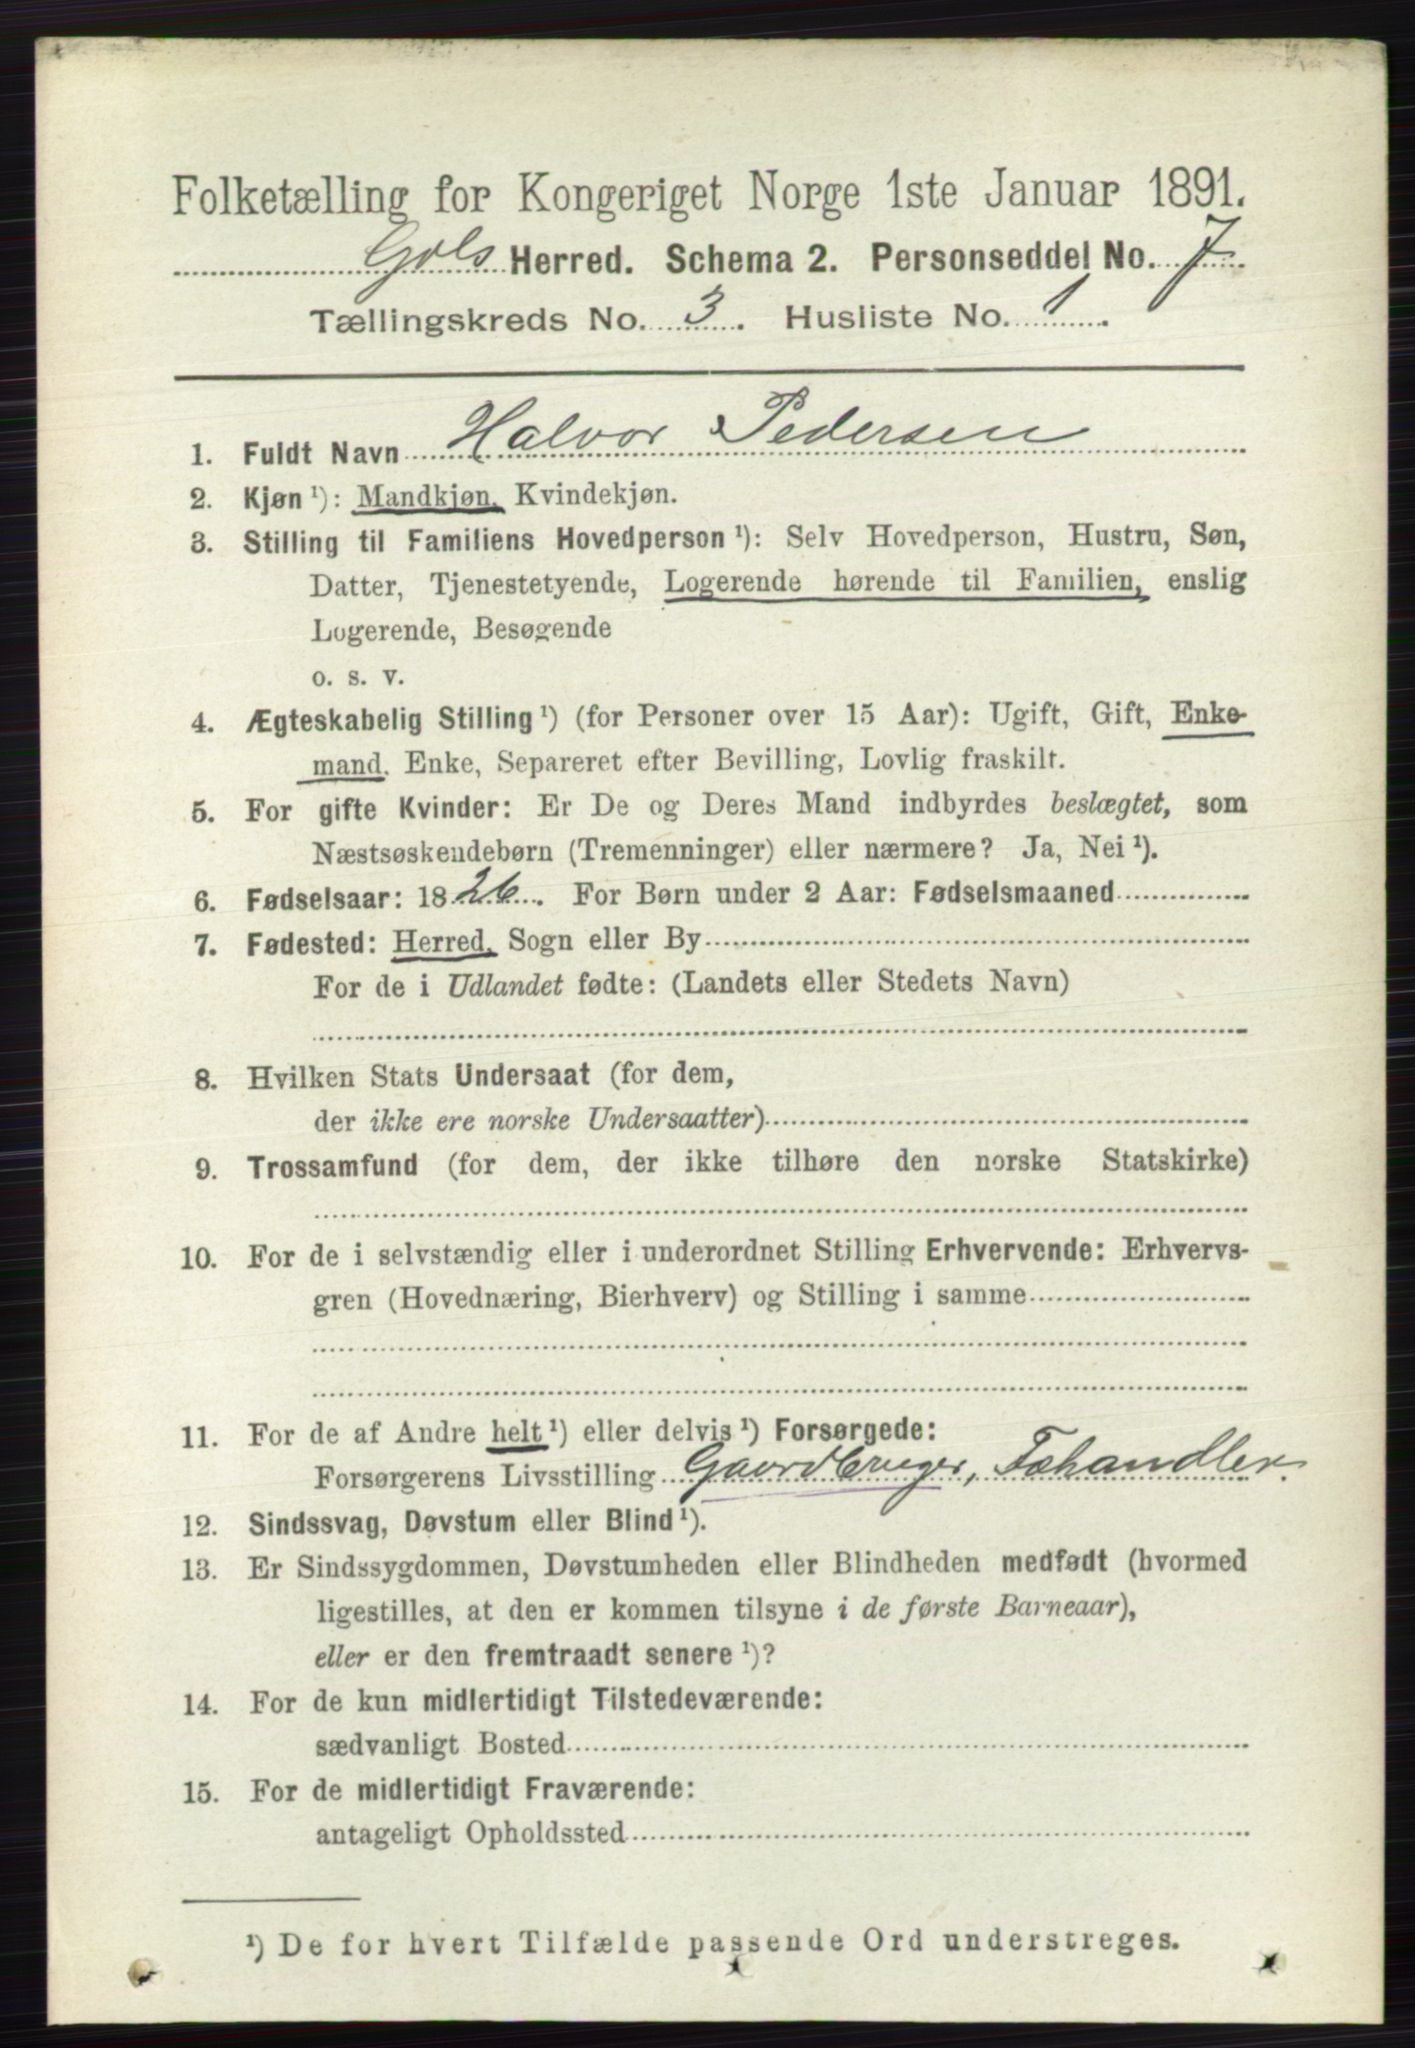 Folketælling for Kongeriget Norge 1ste Januar 1891.
Gols Herred. Schema 2. Personseddel No. 7
Tællingskreds No. 3. Husliste No. 1.
1. Fuldt Navn Halvor Pedersen
2. Kjøn ¹): Mandkjøn, Kvindekjøn.
3. Stilling til Familiens Hovedperson ¹): Selv Hovedperson, Hustru, Søn,
Datter, Tjenestetyende, Logerende hørende til Familien, enslig
Logerende, Besøgende
o. s. v.
4. Ægteskabelig Stilling ¹) (for Personer over 15 Aar): Ugift, Gift, Enke-
mand, Enke, Separeret efter Bevilling, Lovlig fraskilt.
5. For gifte Kvinder: Er De og Deres Mand indbyrdes beslægtet, som
Næstsøskendebørn (Tremenninger) eller nærmere? Ja, Nei ¹).
6. Fødselsaar: 1826. For Børn under 2 Aar: Fødselsmaaned
7. Fødested: Herred, Sogn eller By
For de i Udlandet fødte: (Landets eller Stedets Navn)
8. Hvilken Stats Undersaat (for dem,
der ikke ere norske Undersaatter)
9. Trossamfund (for dem, der ikke tilhøre den norske Statskirke)
10. For de i selvstændig eller i underordnet Stilling Erhvervende: Erhvervs-
gren (Hovednæring, Bierhverv) og Stilling i samme
11. For de af Andre helt ¹) eller delvis ¹) Forsørgede:
Forsørgerens Livsstilling Gaardbruger, Fæhandler.
12. Sindssvag, Døvstum eller Blind ¹).
13. Er Sindssygdommen, Døvstumheden eller Blindheden medfødt (hvormed
ligestilles, at den er kommen tilsyne i de første Barneaar),
eller er den fremtraadt senere ¹)?
14. For de kun midlertidigt Tilstedeværende:
sædvanligt Bosted
15. For de midlertidigt Fraværende:
antageligt Opholdssted
¹) De for hvert Tilfælde passende Ord understreges.